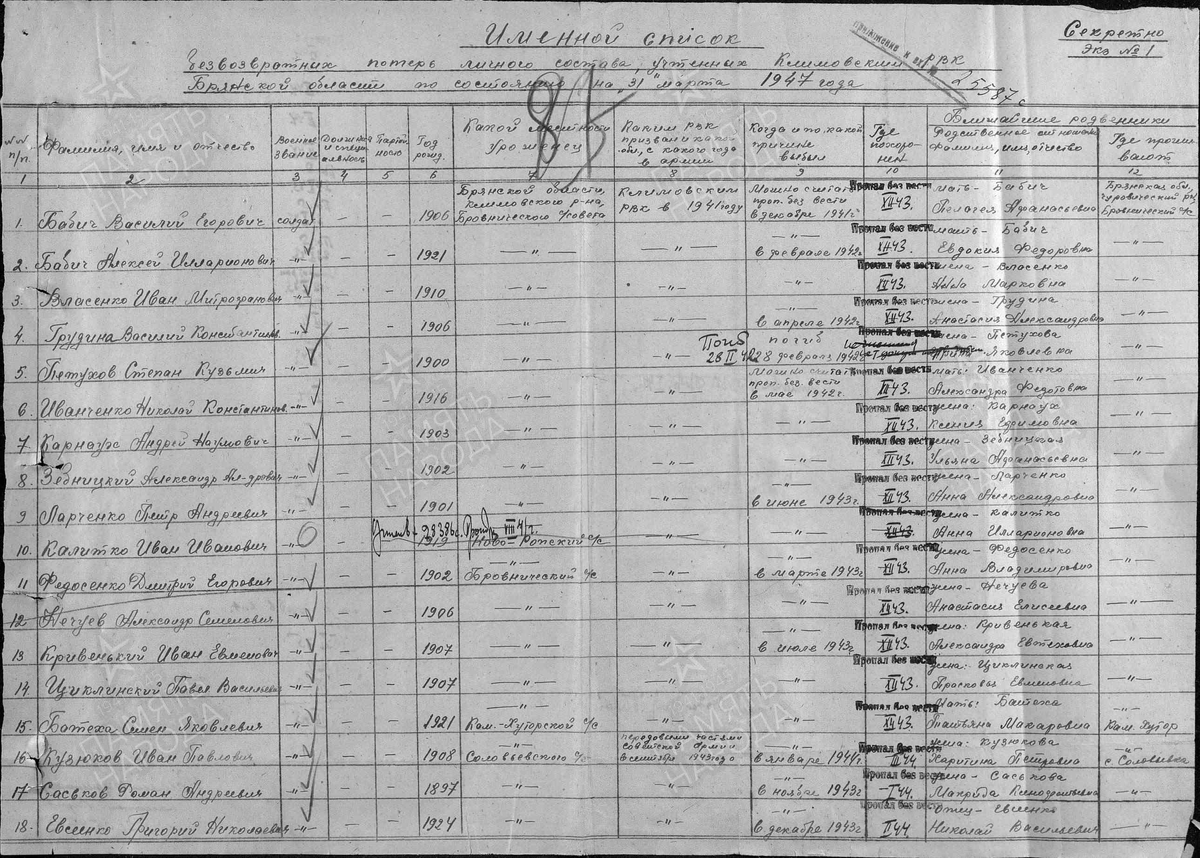 Именной список
Секретно
Экз № 1
безвозвратных потерь личного состава, учтенных Климовским РВК
Брянской области по состоянию на "31" марта 1947 года
25587с
№№ п/п. Фамилия, имя и отчество Военное звание Должность и специальность Партийность Год рожд. Какой местности уроженец Каким РВК призван какой обл., с какого года в армии Когда и по какой причине выбыл Где похоронен Ближайшие родственники
Родственное отношение Фамилия, имя, отчество Где проживают
1 2 3 4 5 6 7 8 9 10 11 12
1. Бабич Василий Егорович солдат – – 1906 Брянской области, Климовского р-на, Бровнического с/совета Климовским РВК в 1941 году Можно считать проп. без вести в декабре 1941г Пропал без вести XII 43. мать – Бабич Пелагея Афанасьевна Брянская обл, Чуровический р-н Бровнический с/с
2. Бабич Алексей Илларионович -"- – – 1921 -"- -"- -"- в феврале 1942г Пропал без вести XII 43. мать – Бабич Евдокия Федоровна -"-
3. Власенко Иван Митрофанович -"- – – 1910 -"- -"- -"- Пропал без вести XII 43. жена – Власенко Анна Марковна -"-
4. Грудина Василий Константинов. -"- – – 1906 -"- -"- -"- в апреле 1942г Пропал без вести XII 43. жена – Грудина Анастасия Александровна -"-
5. Петухов Степан Кузьмич -"- – – 1900 -"- -"- Погиб 28 II 42 погиб 28 февраля 1942г Пропал без вести жена – Петухова Яковлевна -"-
6. Иванченко Николай Константинов. -"- – – 1916 -"- -"- Можно считать проп. без. вести в мае 1942г. Пропал без вести XII 43. мать: Иванченко Александра Федотовна -"-
7. Карнаух Андрей Наумович -"- – – 1903 -"- -"- -"- Пропал без вести жена: Карнаух Ксения Ефимовна -"-
8. Зебницкий Александр Ал-дрович -"- – – 1902 -"- -"- -"- Пропал без вести XII 43. жена – Зебницкая Ульяна Афанасьевна -"-
9. Ларченко Петр Андреевич -"- – – 1901 -"- -"- в июне 1943г Пропал без вести XII 43. жена – Ларченко Анна Александровна -"-
28386с. VIII 41г.
10. Калитко Иван Иванович -"- – – 1919 Ново-Ропский с/с -"- -"- Пропал без вести XII 43. жена – Калитко Анна Илларионовна -"-
11 Федосенко Дмитрий Егорович -"- – – 1902 Бровнический с/с -"- в марте 1943г Пропал без вести XII 43. жена – Федосенко Анна Владимировна -"-
12. Нечуев Александр Семенович -"- – – 1906 -"- -"- -"- Пропал без вести XII 43. жена – Нечуева Анастасия Елисеевна -"-
13 Кривенький Иван Евменович -"- – – 1907 -"- -"- -"- в июле 1943г Пропал без вести XII 43. жена: Кривенькая Александра Евтеховна -"-
14. Циклинский Павел Васильевич -"- – – 1907 -"- -"- -"- Пропал без вести XII 43. жена: Циклинская Прасковья Евменовна -"-
15. Батеха Семен Яковлевич -"- – – 1921 Кам.-Хуторской с/с -"- -"- Пропал без вести XII 43. Мать: Батеха Татьяна Макаровна Кам. Хутор
16. Кузюков Иван Павлович -"- – – 1908 -"- Соловьевского с/с передовыми частями Советской Армии в сентябре 1943 года в январе 1944г. Пропал без вести III 44. жена: Кузюкова Харитина Петровна -"- с. Соловьевка
17 Саськов Роман Андреевич -"- – – 1897 -"- -"- -"- в ноябре 1943г Пропал без вести I 44. жена – Саськова Макрида -"-
18. Евсеенко Григорий Николаевич -"- – – 1924 -"- -"- -"- в декабре 1943г Пропал без вести II 44. Отец – Евсеенко Николай Васильевич -"-
ПАМЯТЬ НАРОДА